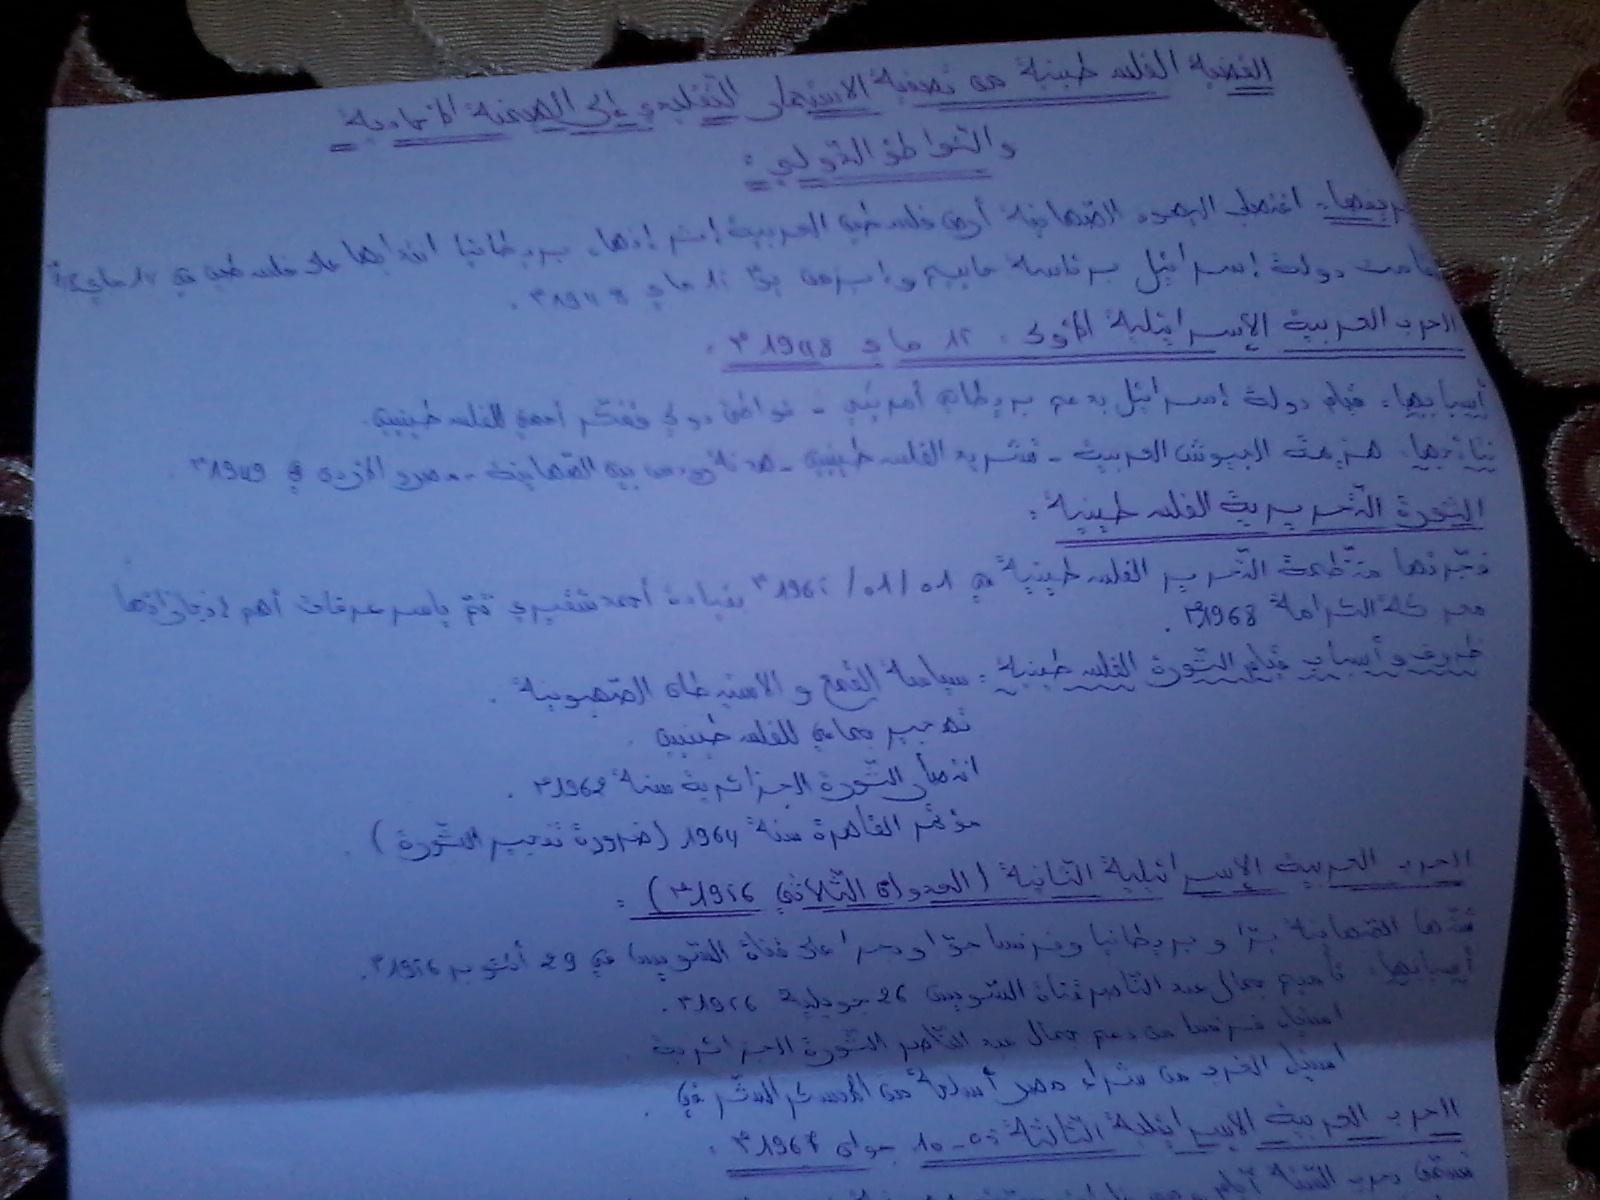 القضية الفلسطينية من تصفية الاستعمار التقليدي إلى الهيمنة الأحادية
والتواطؤ الدولي:
اغتصب اليهود الصهاينة أرض فلسطين العربية إثر إنهاء بريطانيا انتدابها على فلسطين في 15 ماي
دولة إسرائيل برئاسة حاييم وايزمن يوم 15 ماي 1948م.
الحرب العربية الإسرائيلية الأولى: 15 ماي 1948م.
أسبابها: قيام دولة إسرائيل بدعم بريطاني أمريكي - تواطئ دولي أممي للفلسطينيين.
نتائجها: هزيمة الجيوش العربية - تشريد الفلسطينيين - هدنة بين الصهاينة - مصر والأردن في 1949م.
الثورة التحريرية الفلسطينية:
فجرتها منظمة التحرير الفلسطينية في 01/01/1965م بقيادة أحمد شقيري ثم ياسر عرفات أهم إنجازاتها
معركة الكرامة 1968م.
ظروف وأسباب قيام الثورة الفلسطينية: سياسة القمع والاستيطان الصهيونية.
تهجير جماعي للفلسطينيين.
انتصار الثورة الجزائرية سنة 1962م.
مؤتمر القاهرة سنة 1964 (ضرورة تفجير الثورة).
الحرب العربية الإسرائيلية الثانية (العدوان الثلاثي 1956م):
شنها الصهاينة برا وبريطانيا وفرنسا جوا وبحرا على قناة السويس في 29 أكتوبر 1956م.
أسبابها: تأميم جمال عبد الناصر قناة السويس 26 جويلية 1956م.
استياء فرنسا من دعم جمال عبد الناصر الثورة الجزائرية
استياء الغرب من شراء مصر أسلحة من المعسكر الشرقي.
الحرب العربية الإسرائيلية الثالثة: 05-10 جوان 1967م:
تسمى حرب الستة أيام